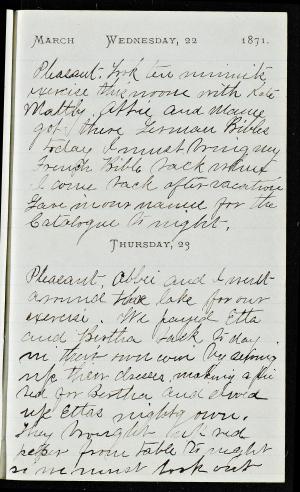 MARCH WEDNESDAY, 22 1871.
Pleasant. Took ten minuits
exercise this noone with Kate
Maltby. Abbie and Mamee
got there German Bibles
today I must bring my
French Bible back when
I come back after vacation
Gave in our names for the
Catalogue to night.
THURSDAY, 23
Pleasant, Abbie and I went
around the lake for our
exercise. We payed Etta
and Bertha back to day
in their own coin by sewing
up their dresses, making a
for Bertha, and sewed
up Ettas night gown.
They brought red
peper from table to night
so we must look out